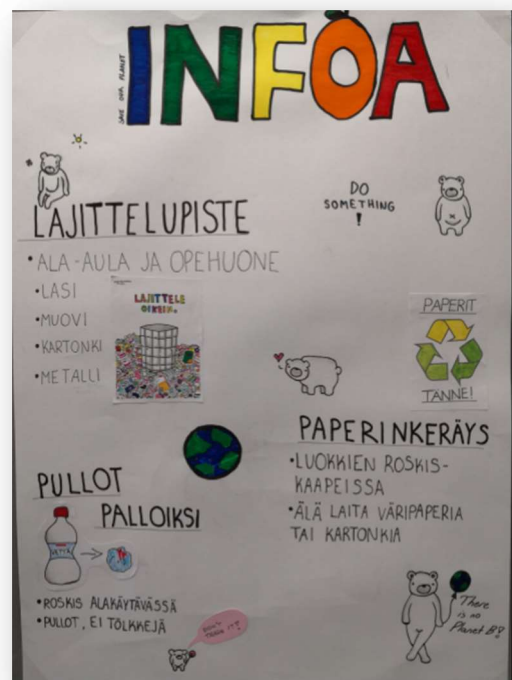 SAVE OUR PLANET
INFOA
DO
SOMETHING
!
LAJITTELUPISTE
•ALA-AULA JA OPEHUONE
•LASI
•MUOVI
•KARTONKI
•METALLI
LAJITTELE
OIKEIN.
PAPERIT
TÄNNE!
PAPERINKERÄYS
•LUOKKIEN ROSKIS-
KAAPEISSA
•ÄLÄ LAITA VÄRIPAPERIA
TAI KARTONKIA
PULLOT
PALLOIKSI
VETTÄ
•ROSKIS ALAKÄYTÄVÄSSÄ
•PULLOT, EI TÖLKKEJÄ
DON'T
TRASH IT!
There
is no
Planet B!